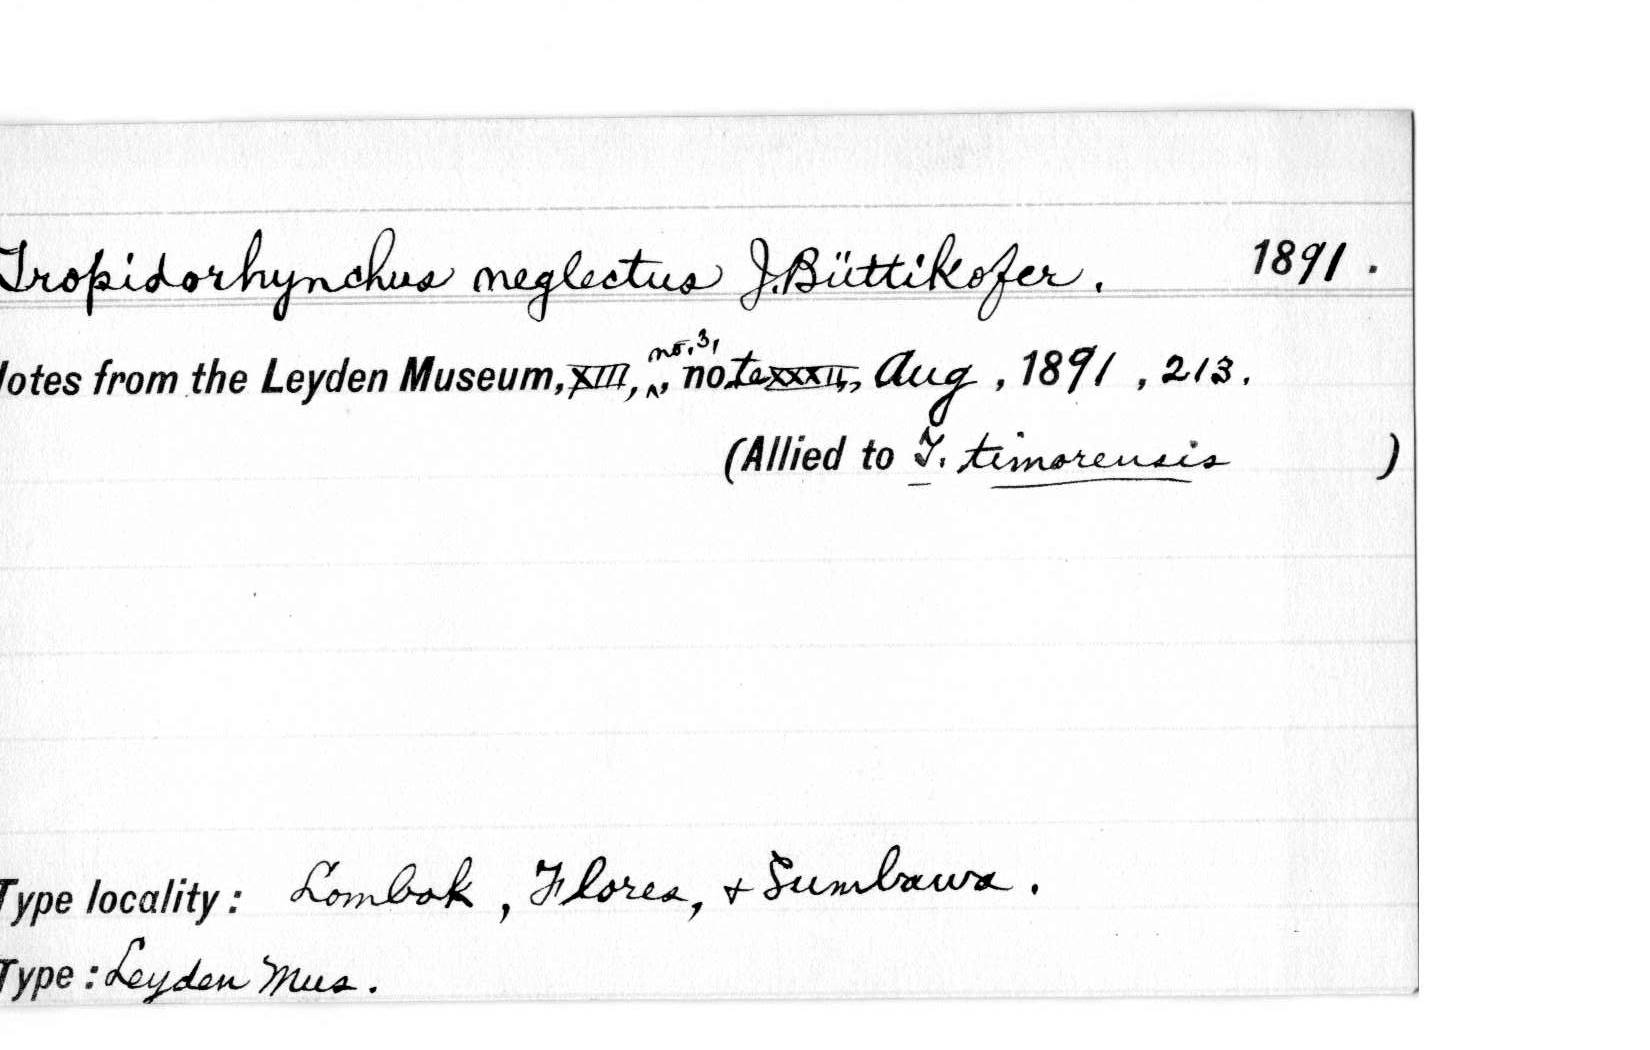 Tropidorhynchus neglectus J. Büttikofer. 1891.
Notes from the Leyden Museum, XIII, no. 3, note XXXII, Aug, 1891, 213.
(Allied to T. timorensis )
Type locality: Lombok, Flores, + Sumbawa.
Type: Leyden Mus.